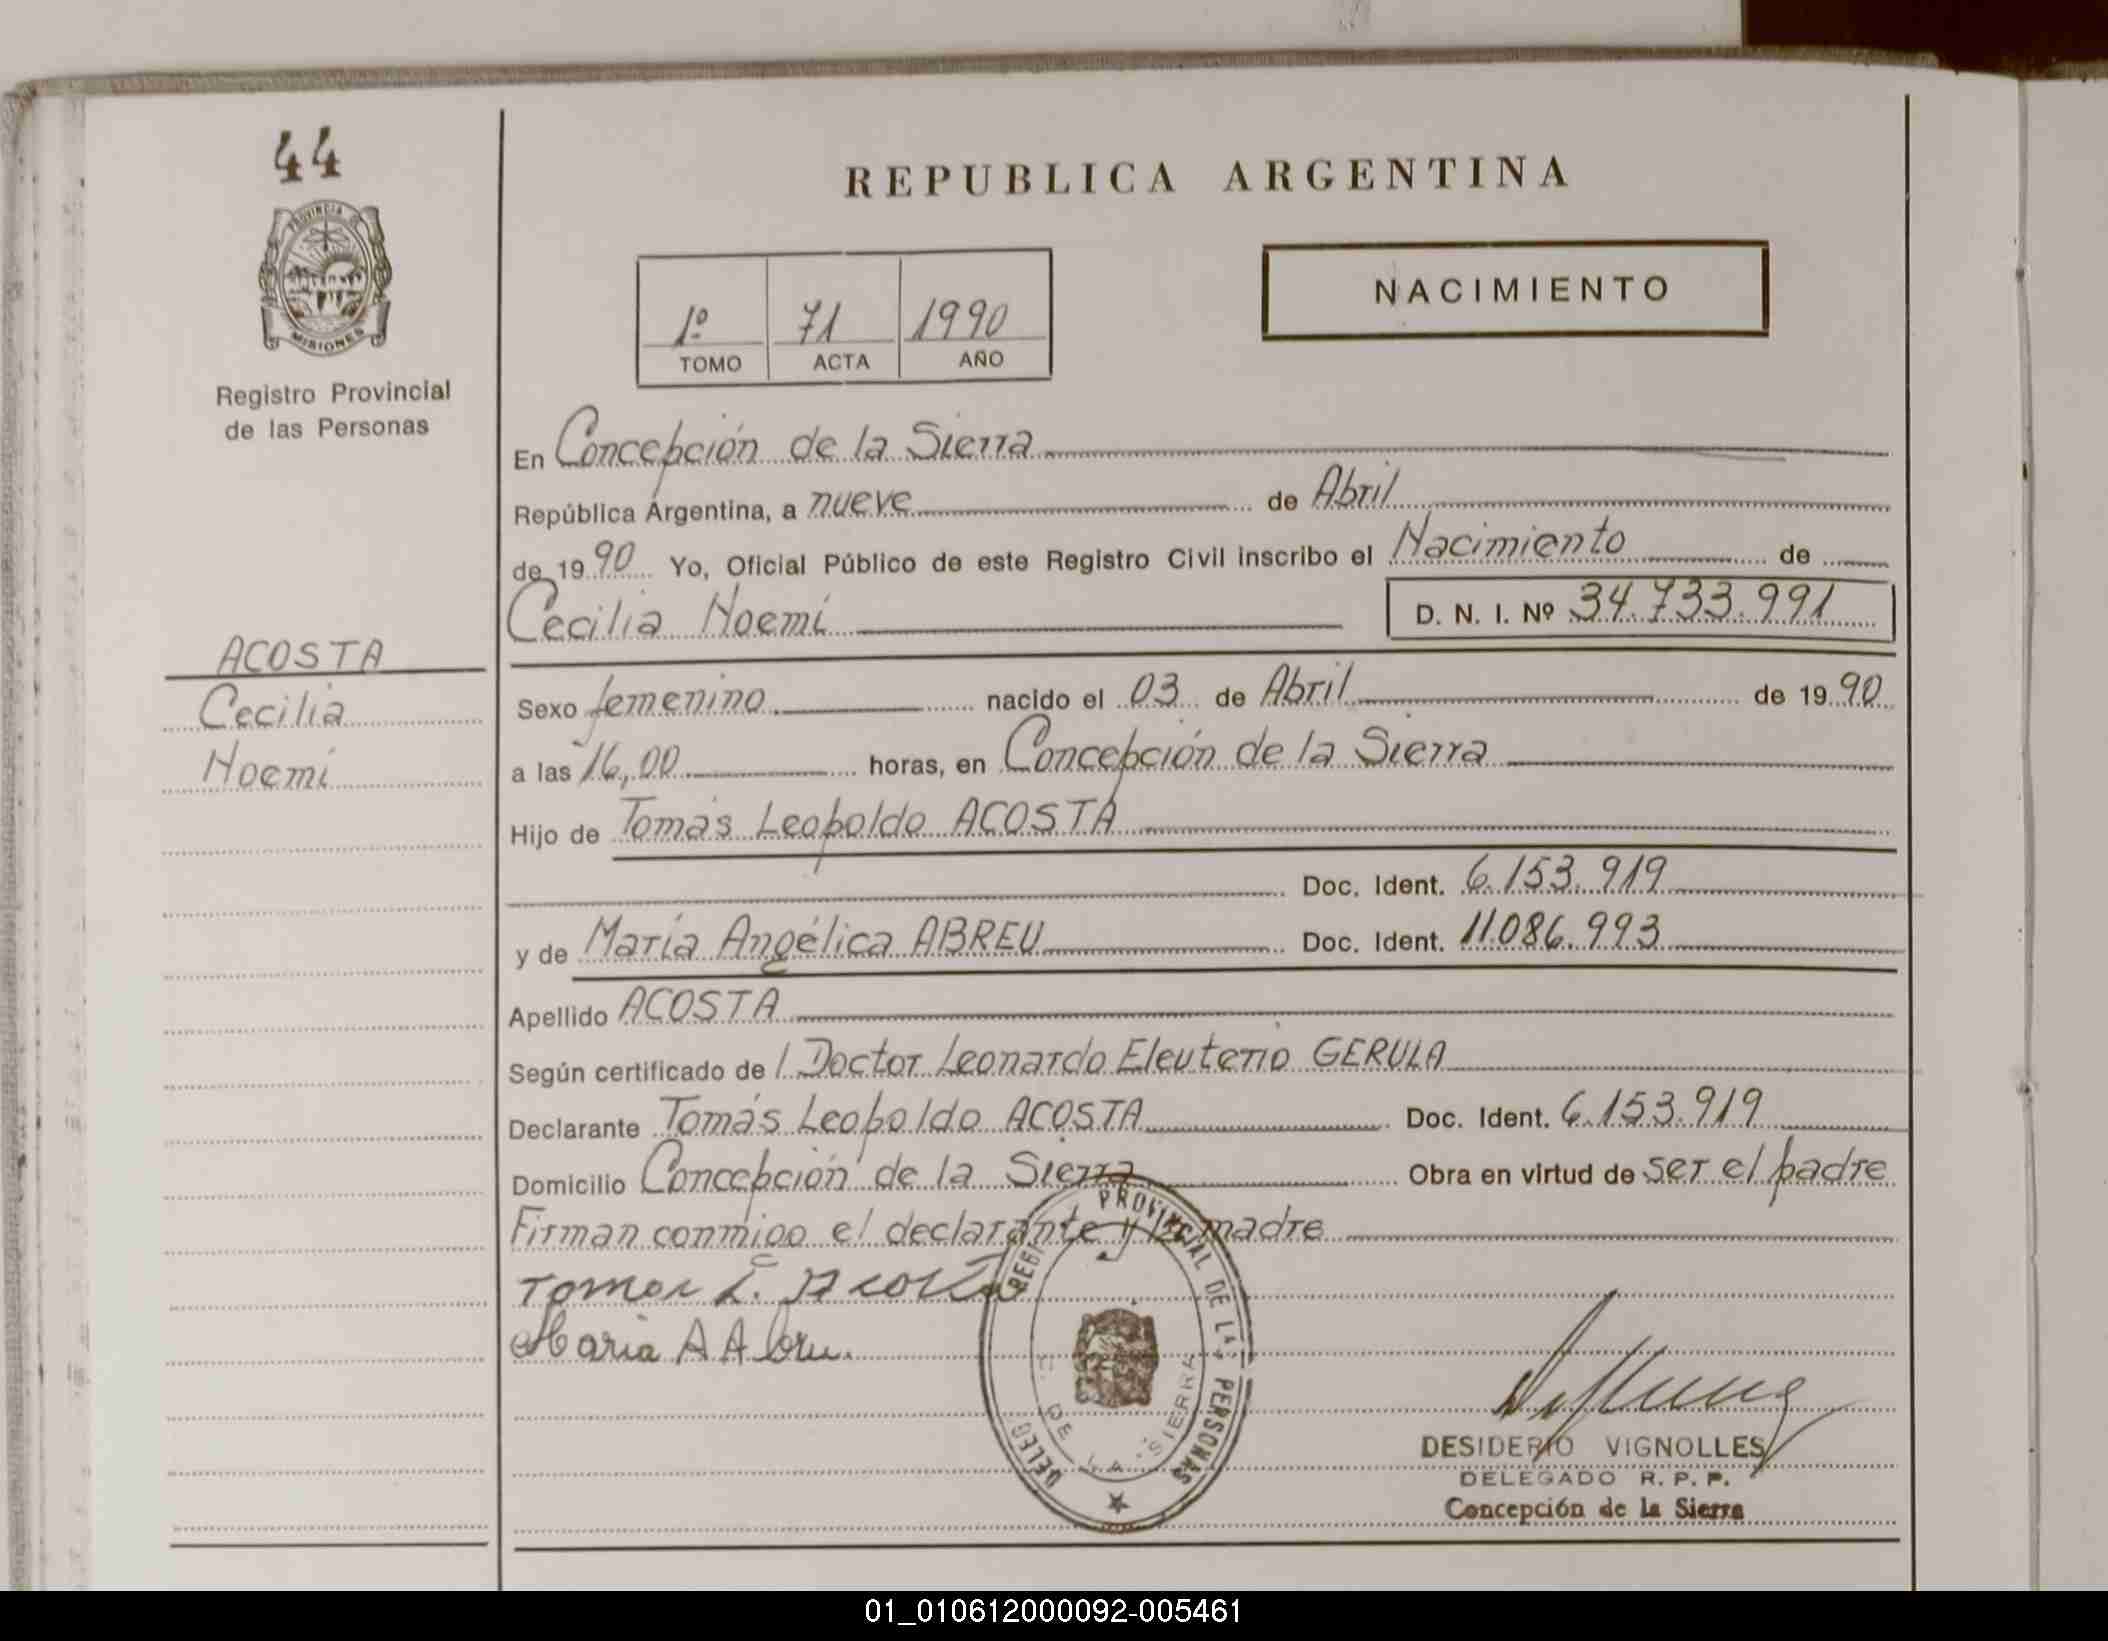 44
PROVINCIA DE
MISIONES
Registro Provincial
de las Personas
ACOSTA
Cecilia
Noemí
REPUBLICA ARGENTINA
1º 71 1990
TOMO ACTA AÑO
NACIMIENTO
En Concepción de la Sierra
República Argentina, a nueve de Abril
de 1990 Yo, Oficial Público de este Registro Civil inscribo el Nacimiento de
Cecilia Noemí D. N. I. Nº 34.733.991
Sexo femenino nacido el 03 de Abril de 1990
a las 16,00 horas, en Concepción de la Sierra
Hijo de Tomás Leopoldo ACOSTA
Doc. Ident. 6.153.919
y de María Angélica ABREU Doc. Ident. 11.086.993
Apellido ACOSTA
Según certificado de l Doctor Leonardo Eleuterio GERULA
Declarante Tomás Leopoldo ACOSTA Doc. Ident. 6.153.919
Domicilio Concepción de la Sierra Obra en virtud de ser el padre
Firman conmigo el declarante y la madre
Tomas L. Acosta
Maria A Abreu.
PROVINCIAL DE LAS PERSONAS
DE LA SIERRA
DESIDERIO VIGNOLLES
DELEGADO R. P. P.
Concepción de la Sierra
01_010612000092-005461